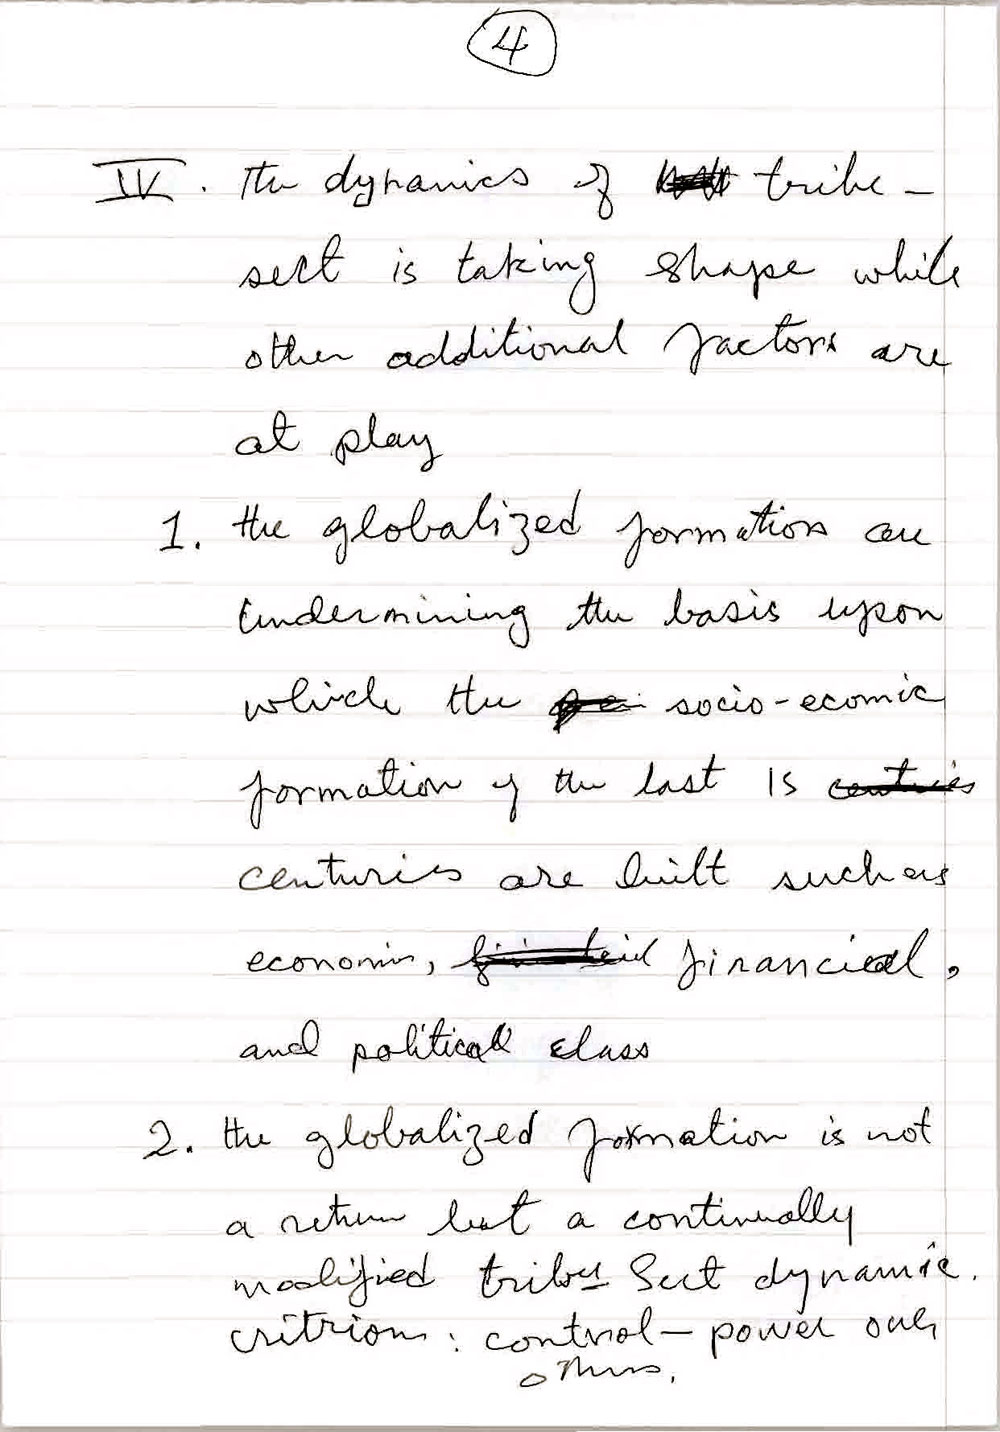 4
IV. The dynamics of tribe-
sect is taking shape while
other additional factors are
at play
1. the globalized formation are
undermining the basis upon
which the socio-ecomic
formation of the last 15 centries
centuries are built such as
economic, financial,
and political class
2. the globalized formation is not
a return but a continually
modified tribes Sect dynamic.
critrion: control - power over
others.